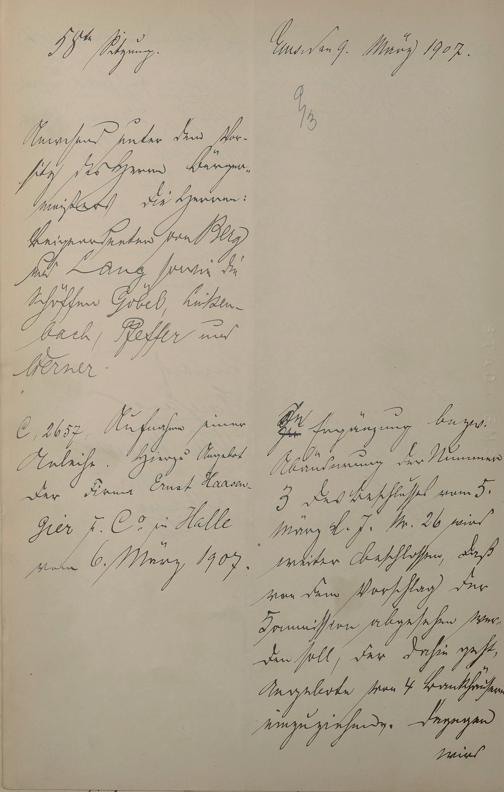 58te Sitzung.
Ems, den 9. März 1907.
9/3
Anwesend unter dem Vor-
sitz des Herrn Bürger-
meisters die Herren:
Beigeordneten von Berg
und Lang sowie die
Schöffen Göbel, Linken-
bach, Pfeffer und
Werner.
C. 2657. Aufnahme einer
Anleihe. Hierzu Angebot
der Firma Ernst Haassen-
gier u. Co in Halle
vom 6. März 1907.
In Ergänzung bezw.
Abänderung der Nummer
3 des Beschlusses vom 5.
März l. J. Nr. 26 wird
weiter beschlossen, daß
von dem Vorschlag der
Kommission abgesehen wer-
den soll, der dahin geht,
Angebote von 4 Bankhäusern
einzuziehen. Dagegen
wird